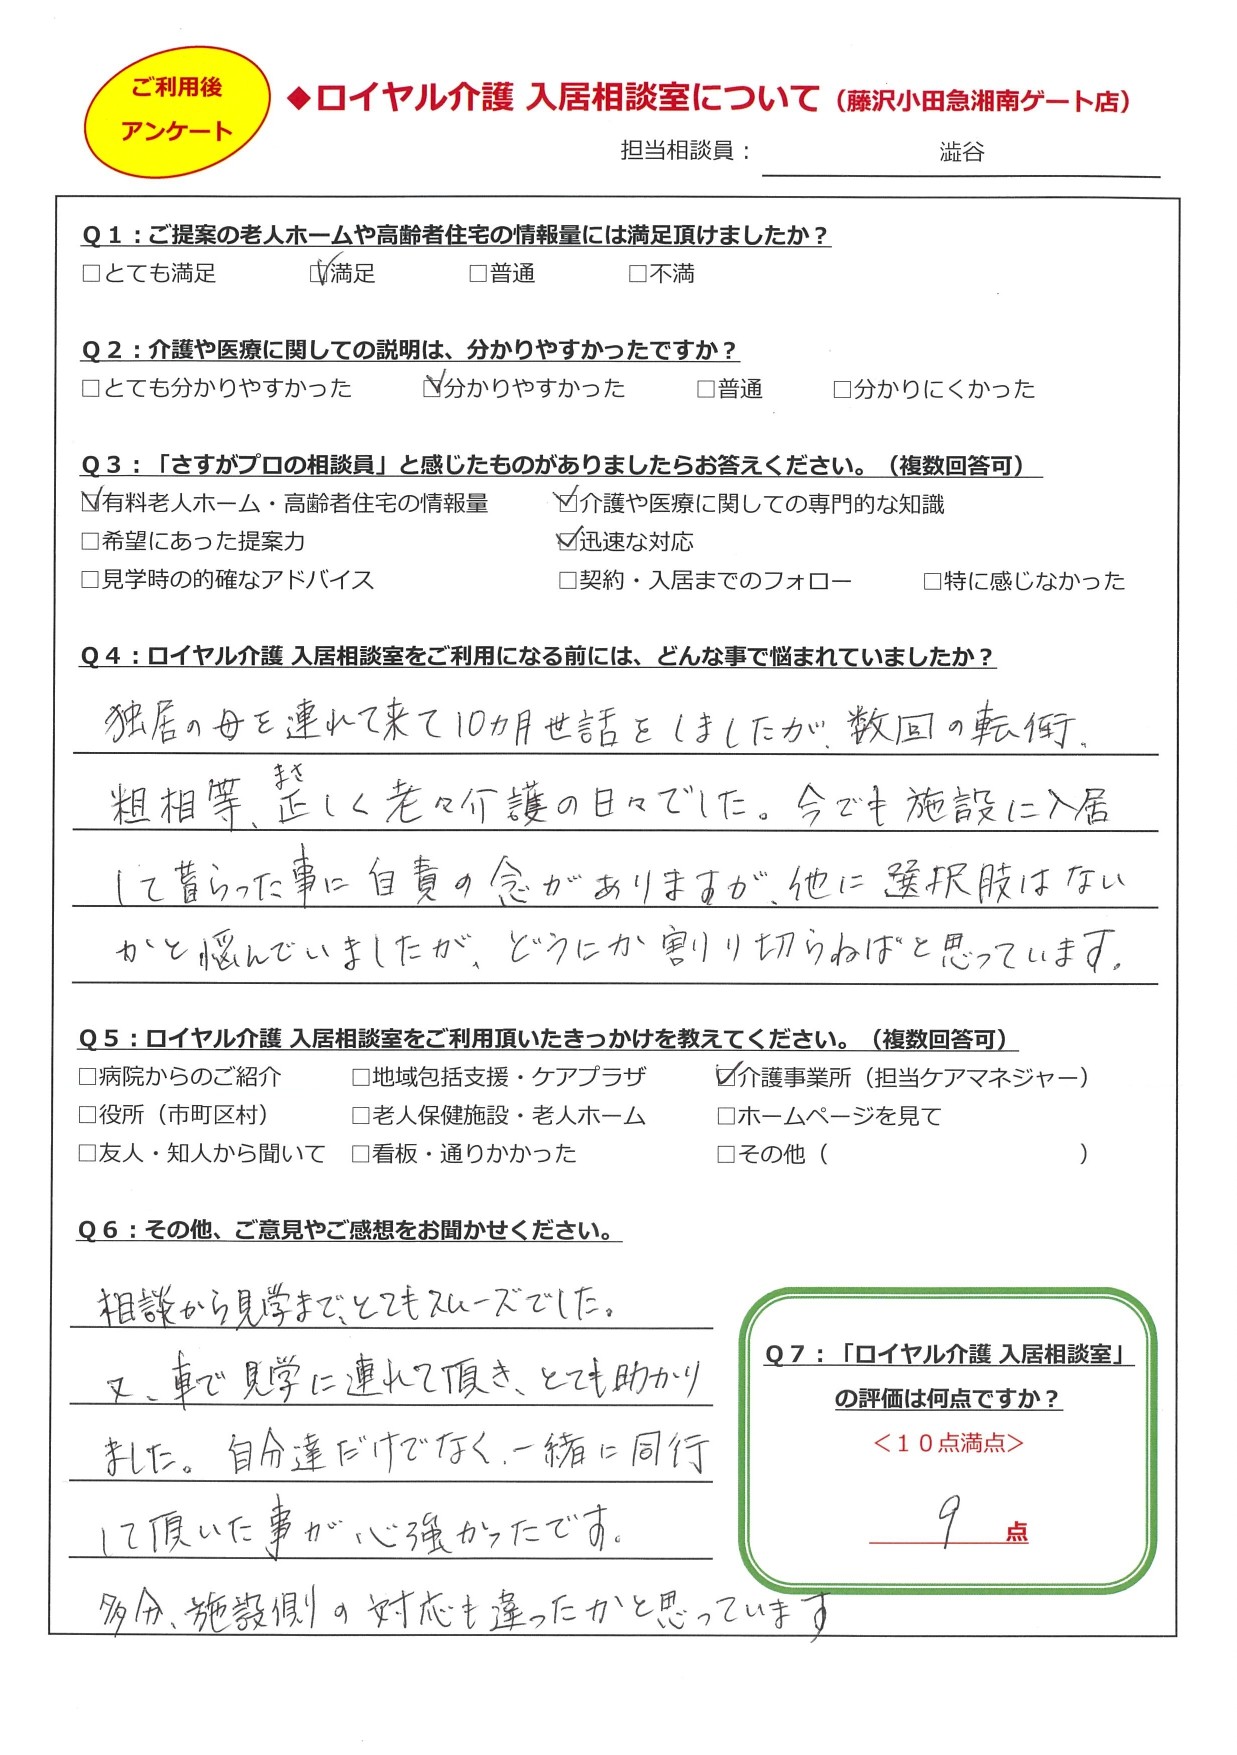 ご利用後
アンケート
◆ロイヤル介護 入居相談室について（藤沢小田急湘南ゲート店）
担当相談員： 澁谷
Q１：ご提案の老人ホームや高齢者住宅の情報量には満足頂けましたか？
□とても満足 ☑満足 □普通 □不満
Q２：介護や医療に関しての説明は、分かりやすかったですか？
□とても分かりやすかった ☑分かりやすかった □普通 □分かりにくかった
Q３：「さすがプロの相談員」と感じたものがありましたらお答えください。（複数回答可）
☑有料老人ホーム・高齢者住宅の情報量 ☑介護や医療に関しての専門的な知識
□希望にあった提案力 ☑迅速な対応
□見学時の的確なアドバイス □契約・入居までのフォロー □特に感じなかった
Q４：ロイヤル介護 入居相談室をご利用になる前には、どんな事で悩まれていましたか？
独居の母を連れて来て10カ月世話をしましたが、数回の転倒、
まさ
粗相等、正しく老々介護の日々でした。今でも施設に入居
して貰らった事に自責の念がありますが、他に選択肢はない
かと悩んでいましたが、どうにか割り切らねばと思っています。
Q５：ロイヤル介護 入居相談室をご利用頂いたきっかけを教えてください。（複数回答可）
□病院からのご紹介 □地域包括支援・ケアプラザ ☑介護事業所（担当ケアマネジャー）
□役所（市町区村） □老人保健施設・老人ホーム □ホームページを見て
□友人・知人から聞いて □看板・通りかかった □その他（ ）
Q６：その他、ご意見やご感想をお聞かせください。
相談から見学まで、とてもスムーズでした。
又、車で見学に連れて頂き、とても助かり
ました。自分達だけでなく、一緒に同行
して頂いた事が心強かったです。
多分、施設側の対応も違ったかと思っています
Q７：「ロイヤル介護 入居相談室」
の評価は何点ですか？
＜１０点満点＞
9 点